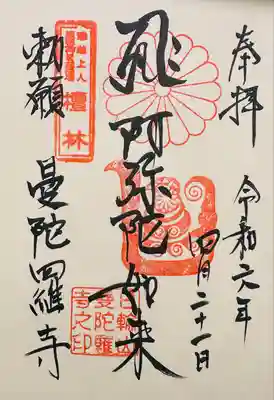 奉拝
令和六年
四月二十一日
阿弥陀如来
勅願
曼陀羅寺
檀林
日輪山
曼陀羅
寺之印